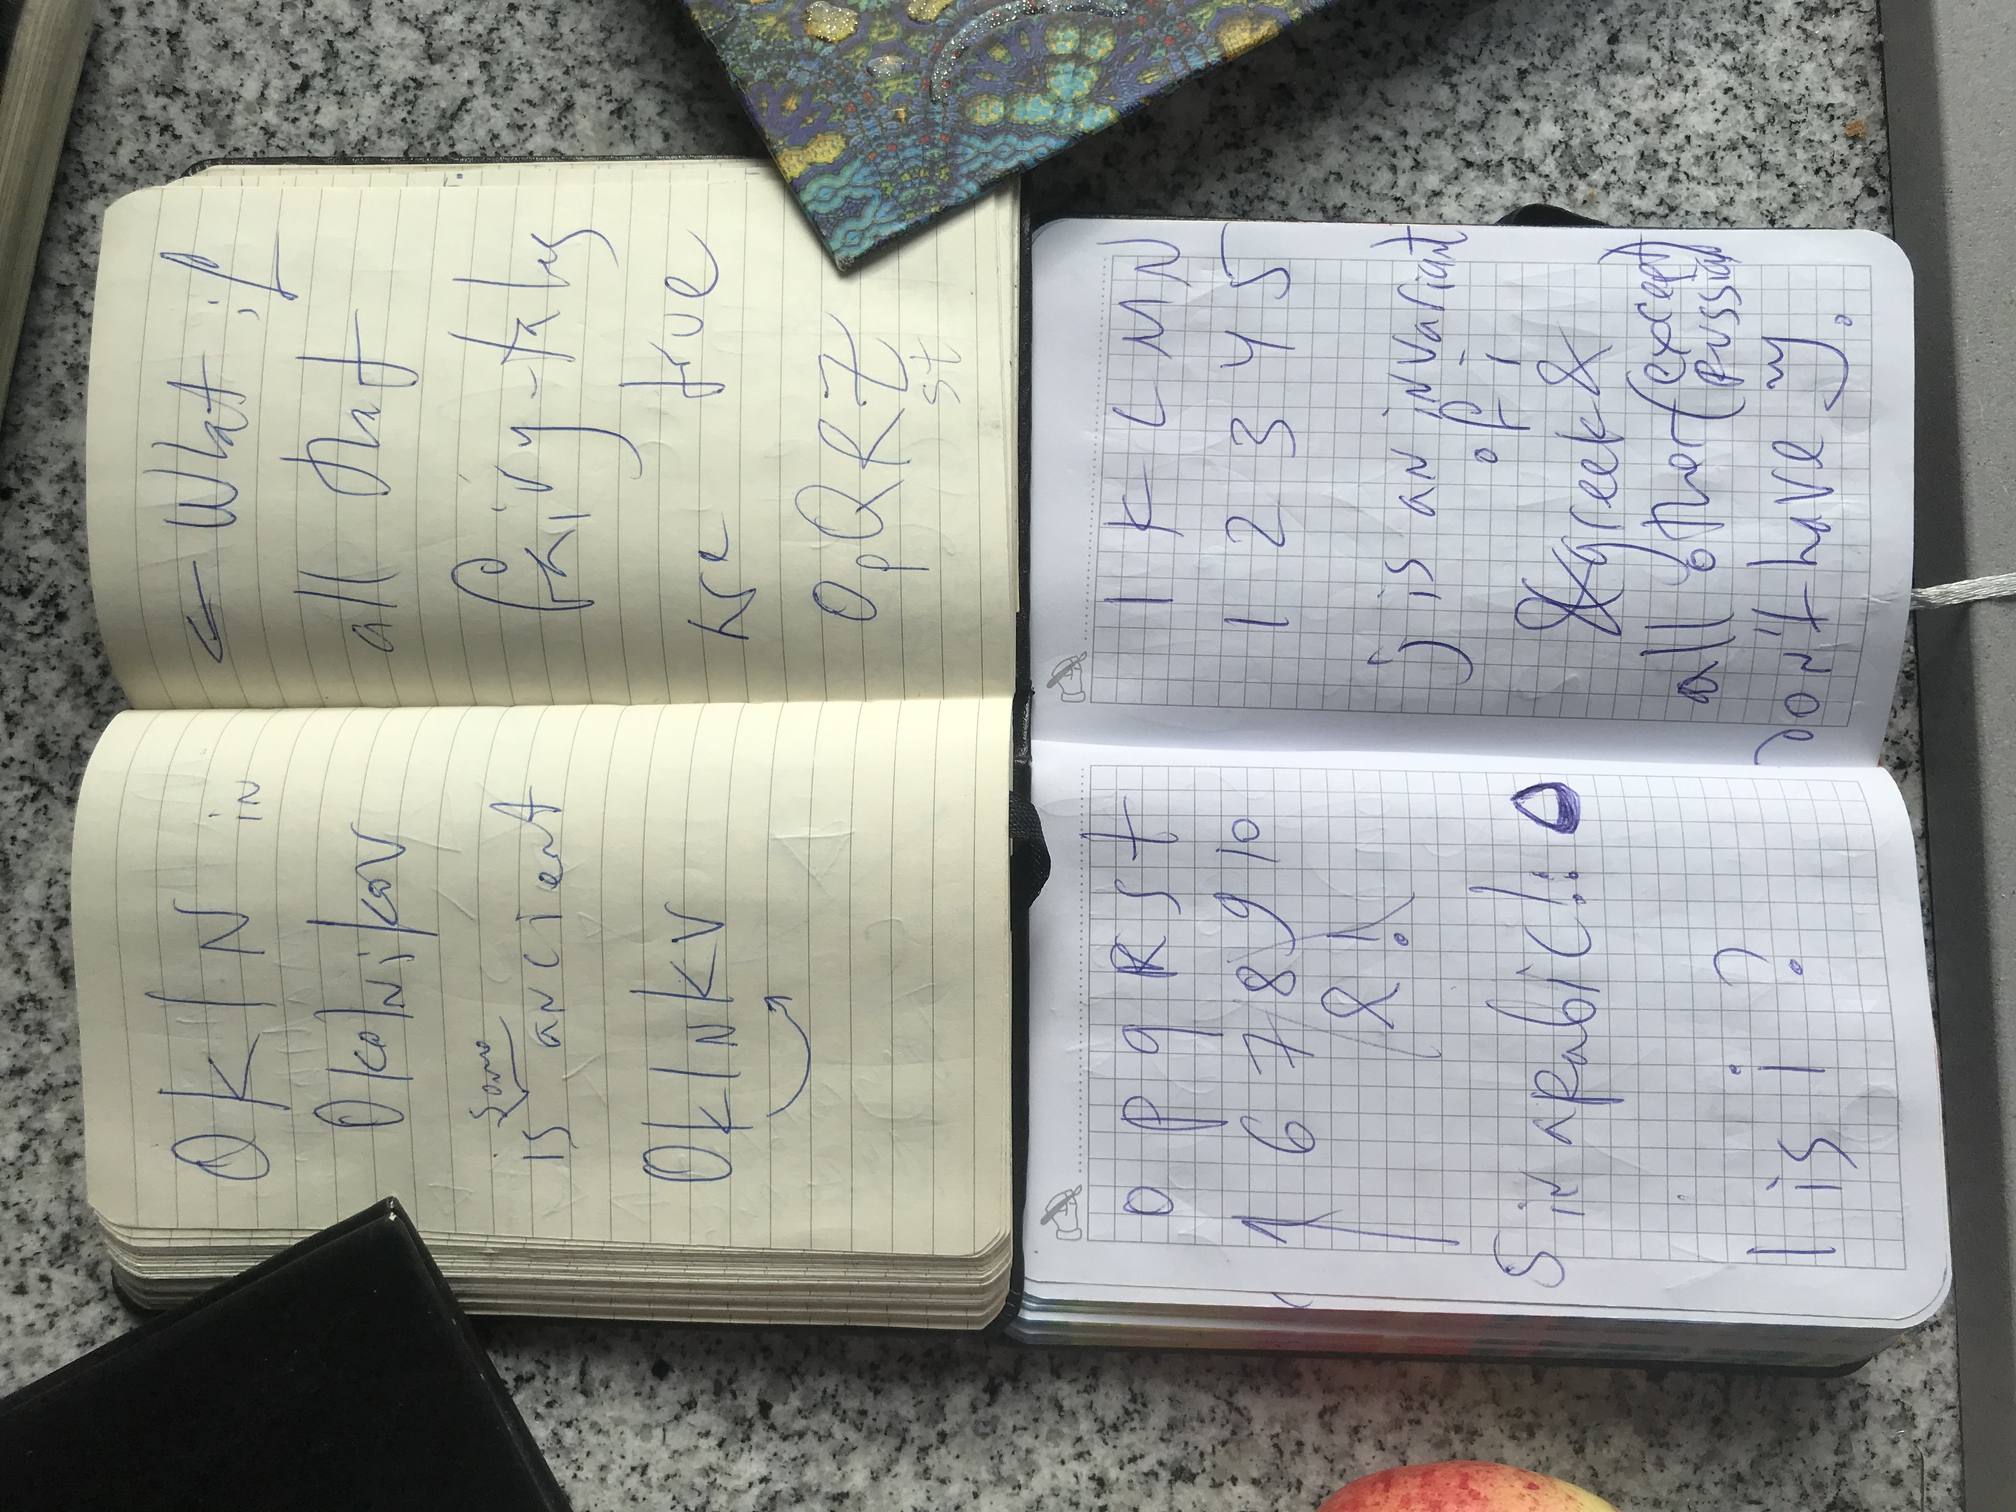 OKIN in
Okolnikov
some
is ancient
OkINKV
← What if
all that
fairy-tales
are true
O P Q R Z
st
O P q R S t
6 7 8 9 10
&
5 in Arabic!:
1 is i?
I K L M N
1 2 3 4 5
j is an invariant
of i
Greek &
all other (except
Russian)
don't have y.